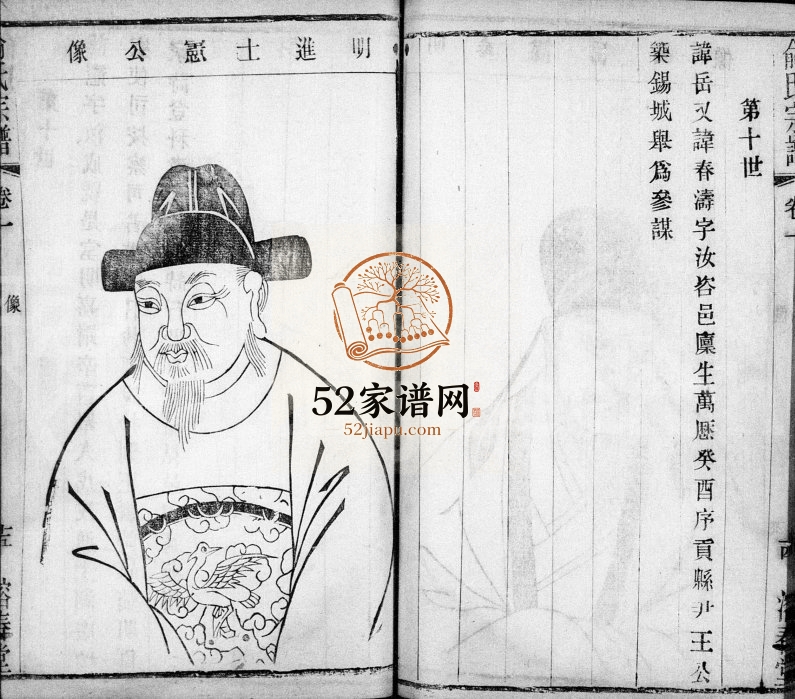 第十世
諱岳又諱春濤字汝咨邑廩生萬歷癸酉序貢縣尹王公
築錫城舉爲參謀
明進士憲公像
卷一
像
52家谱网
52jiapu.com